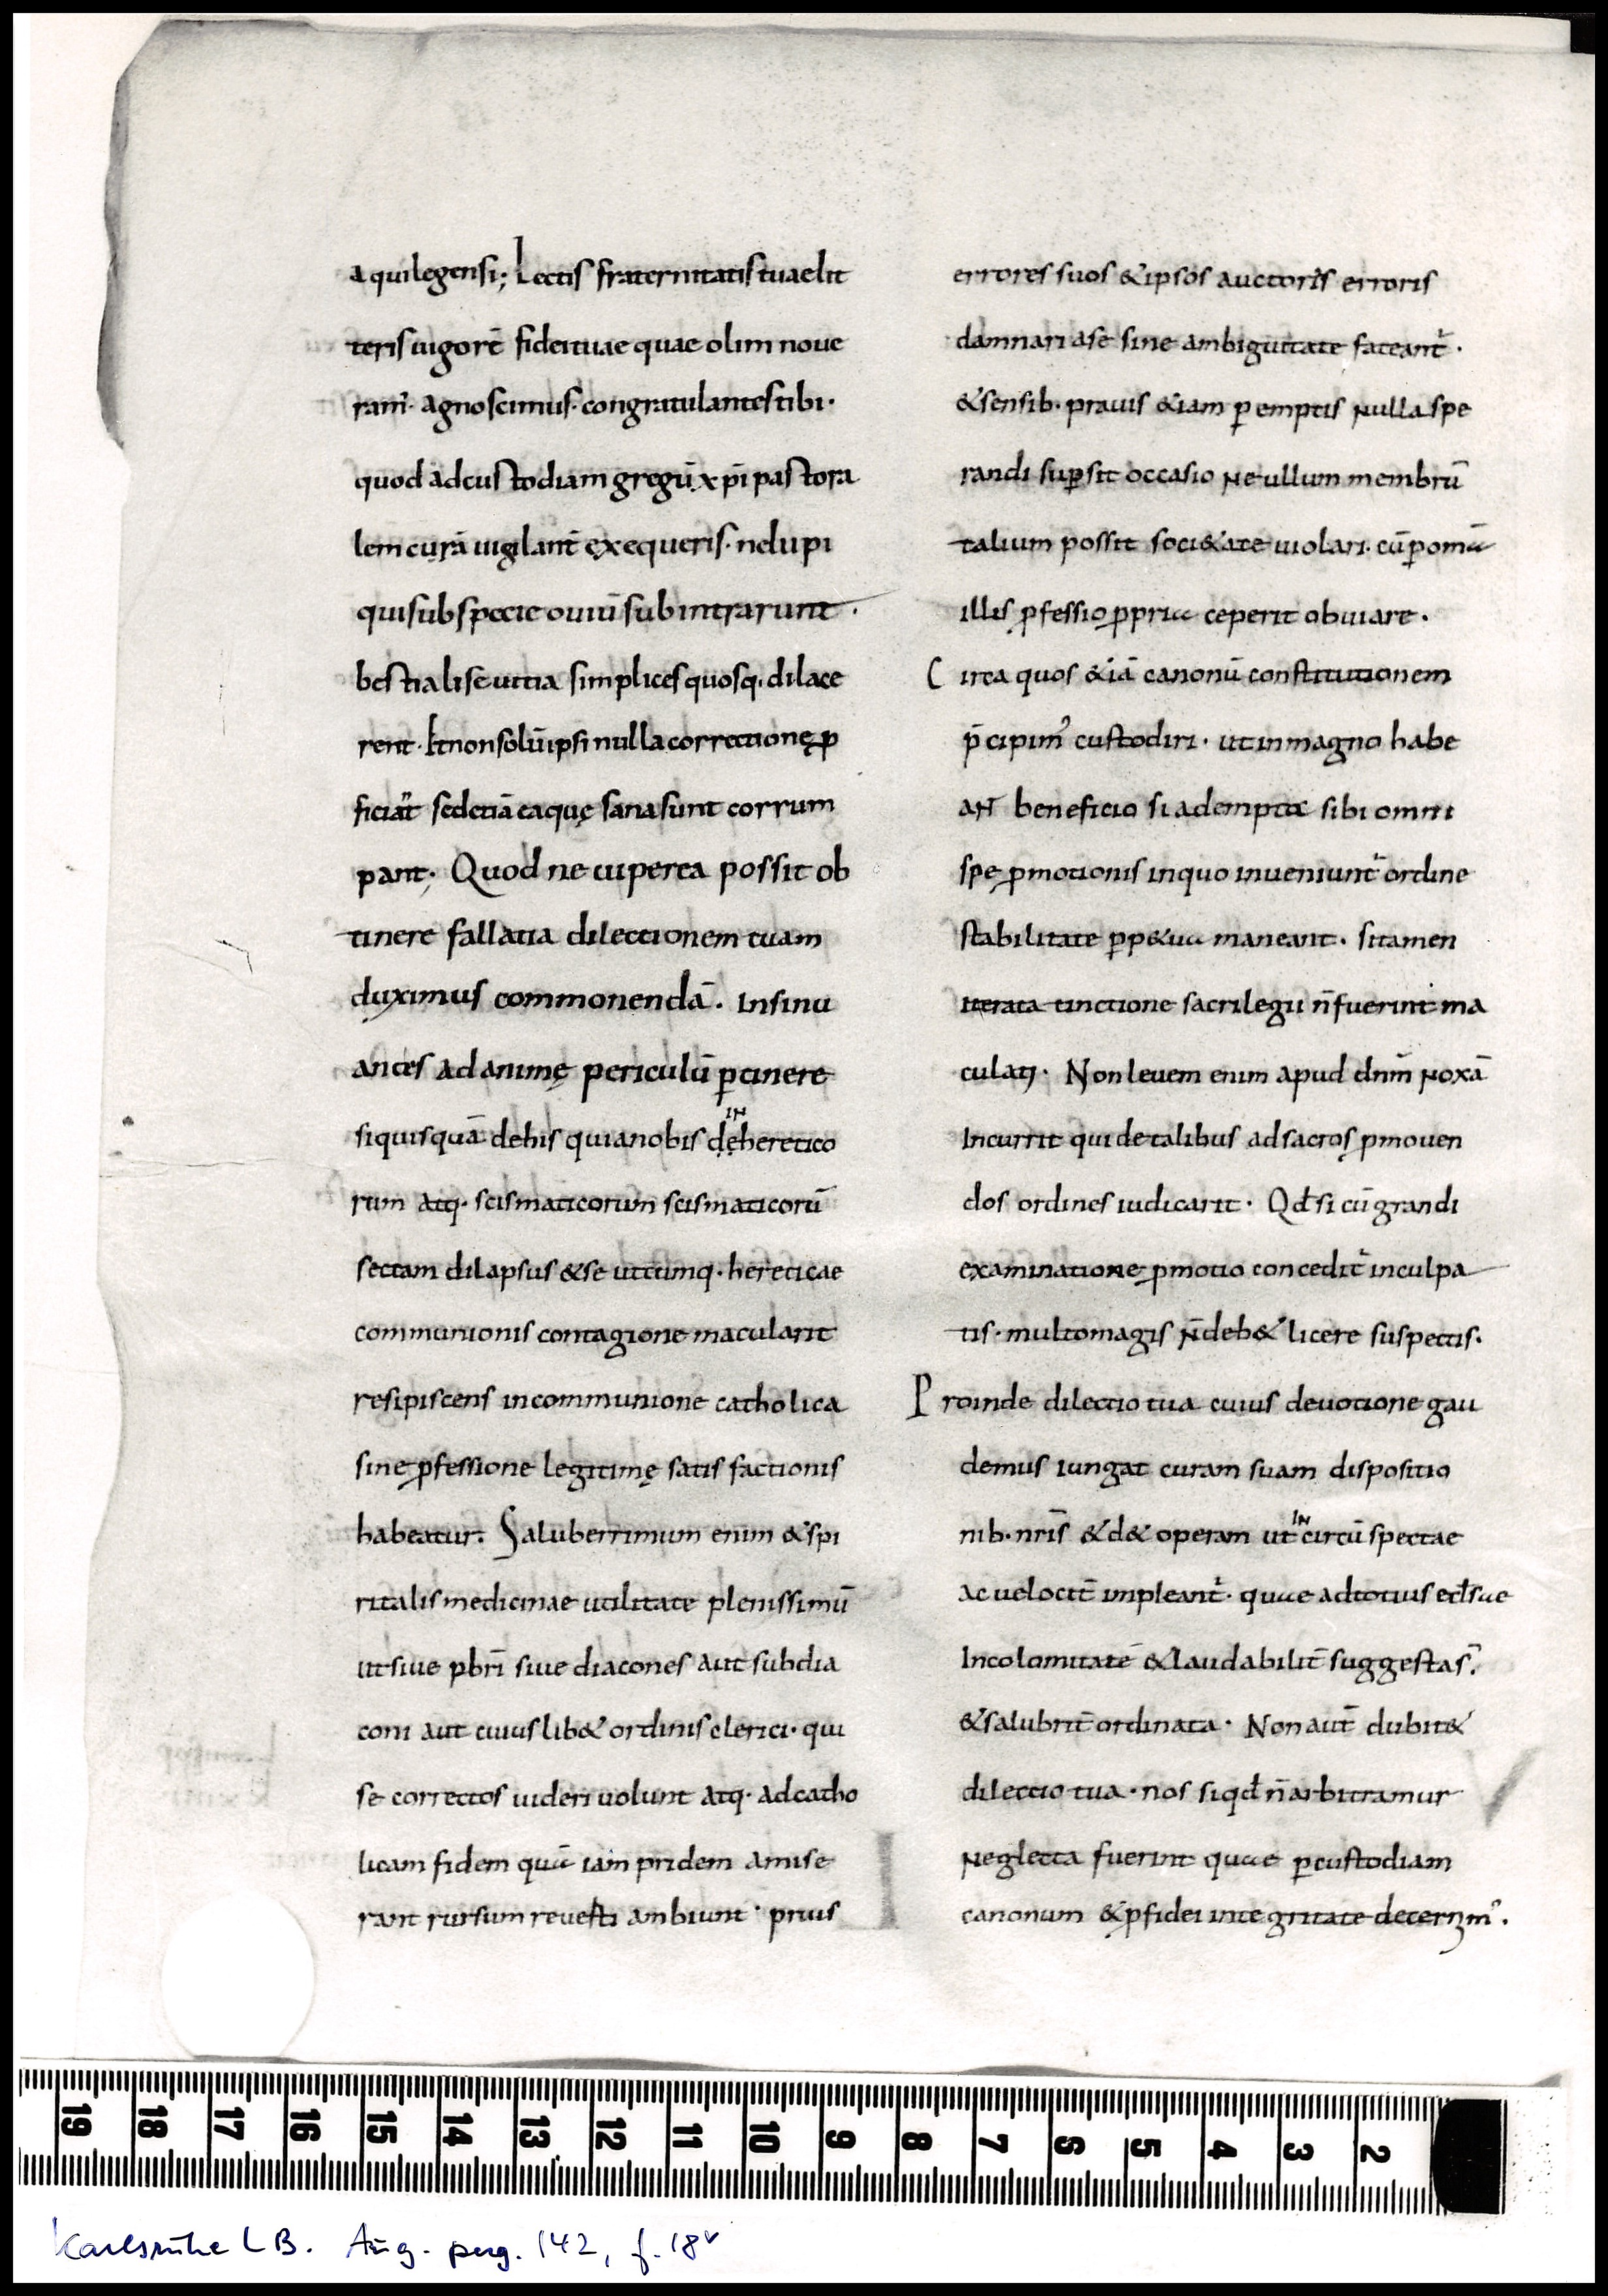 aquilegensi; Lectis fraternitatis tuae lit
teris uigorē fidei tuae quae olim noue
ram᾽ agnoscimus· congratulantes tibi·
quod ad custodiam gregū xp̄i pastora
lem curā uigilant̄ exequeris· ne lupi
qui sub specie ouiū subintrarunt·
bestiali seuitia simplices quosq· dilace
rent· Et non solū ipsi nulla correctionę ꝓ
ficiant sed etiā ea quę sana sunt corrum
pant· Quod ne uiperea possit ob
tinere fallatia dilectionem tuam
duximus commonendā. Insinu
antes ad animę periculū ꝑtinere
si quisquā de his qui a nobis de IN heretico
rum atq· scismaticorum scismaticorū
sectam dilapsus & se utcumq· hereticae
communionis contagione macularit
resipiscens in communione catholica
sine ꝓfessione legitimę satisfactionis
habeatur. Saluberrimum enim & spi
ritalis medicinae utilitate plenissimū
ut siue pbr̄i siue diacones aut subdia
coni aut cuiuslib& ordinis clerici· qui
se correctos uideri uolunt atq· ad catho
licam fidem quā iam pridem amise
rant rursum reuerti ambiunt· prius
errores suos & ipsos auctoris erroris
damnari a se sine ambiguitate fateant᾽·
& sensib· prauis &iam ꝑemptis nulla spe
randi suꝑsit occasio ne ullum membrū
talium possit soci&ate uiolari· cū ꝑ omīa
illis ꝓfessio ꝓpria ceperit obuiare·
Circa quos &iā canonū constitutionem
p̄cipim᾽ custodiri· ut in magno habe
ant beneficio si adempta sibi omni
spe ꝓmotionis in quo inueniunt᾽ ordine
stabilitate ꝑp&ua maneant· si tamen
iterata tinctione sacrilegii n̄ fuerint ma
culati· Non leuem enim apud dn̄m noxā
Incurrit qui de talibus ad sacros ꝓmouen
dos ordines iudicarit· Qd̄ si cū grandi
examinatione ꝓmotio concedit᾽ inculpa
tis· multo magis n̄ deb& licere suspectis·
Proinde dilectio tua cuius deuotione gau
demus iungat curam suam dispositio
nib· nr̄is & d& operam ut IN circūspectae
ac uelocit̄ impleant᾽· quae ad totius eccl̄siae
Incolomitatē & laudabilit̄ suggesta s̄·
& salubrit̄ ordinata· Non aut̄ dubit&
dilectio tua· nos si qd̄ n̄ arbitramur
neglecta fuerint quae ꝑ custodiam
canonum & ꝓ fidei integritate decernim᾽·
19 18 17 16 15 14 13 12 11 10 9 8 7 6 5 4 3 2
Karlsruhe LB. Aug. perg. 142, f. 18v